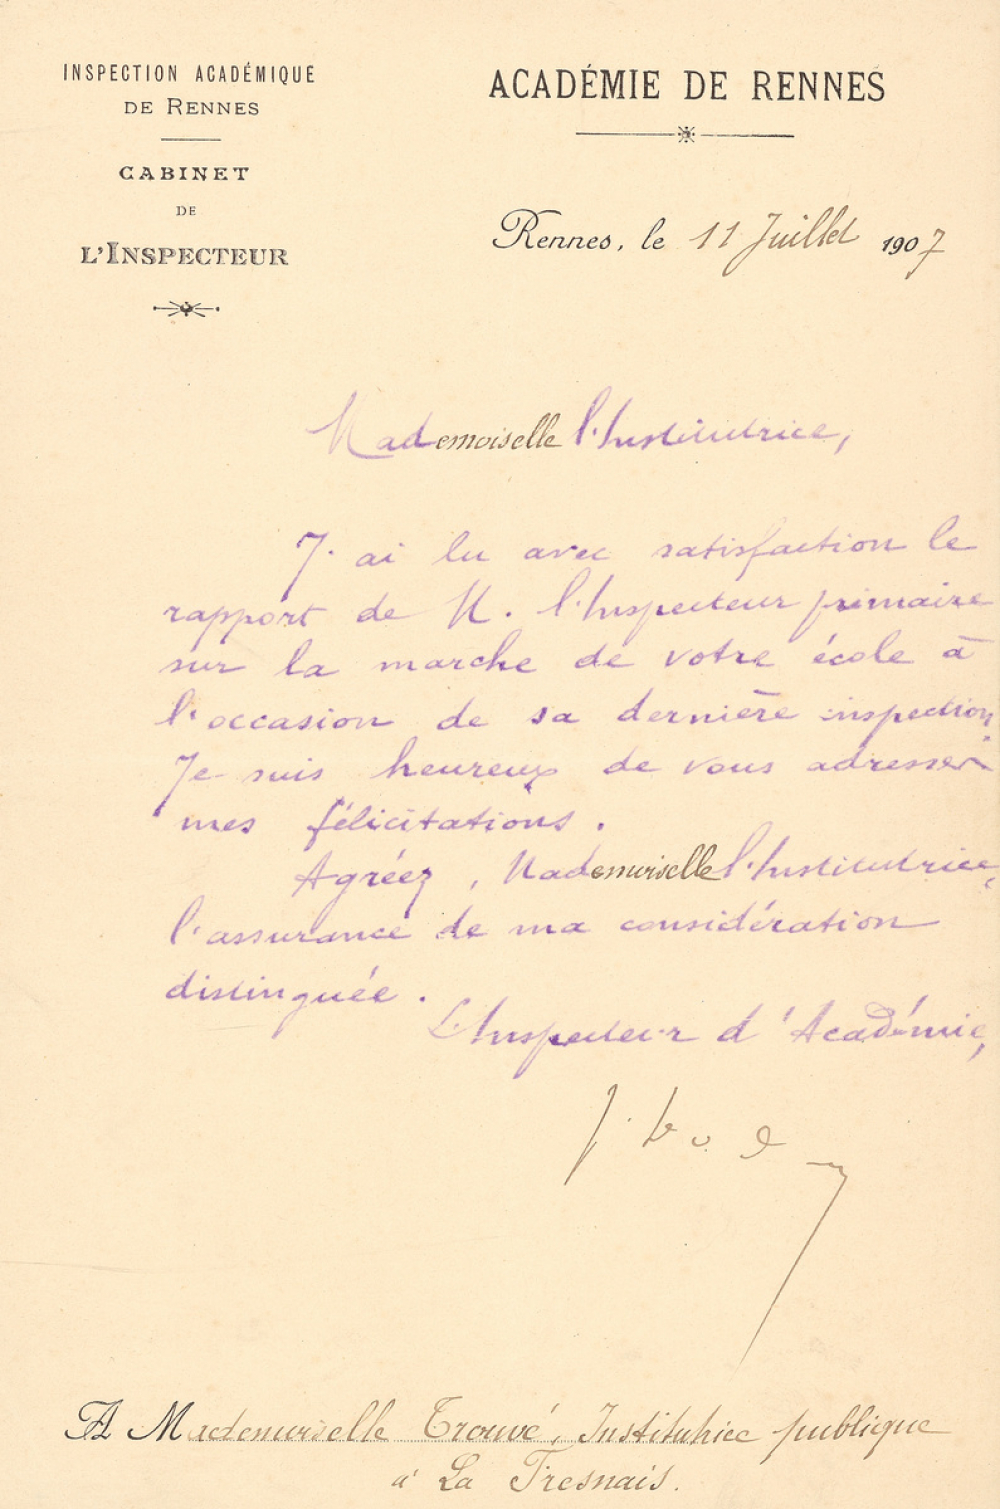 INSPECTION ACADÉMIQUE
DE RENNES
CABINET
DE
L'INSPECTEUR
ACADÉMIE DE RENNES
Rennes, le 11 Juillet 1907
Mademoiselle l'Institutrice,
J'ai lu avec satisfaction le
rapport de M. l'Inspecteur primaire
sur la marche de votre école à
l'occasion de sa dernière inspection.
Je suis heureux de vous adresser
mes félicitations.
Agréez, Mademoiselle l'Institutrice,
l'assurance de ma considération
distinguée.
L'Inspecteur d'Académie,
A Mademoiselle Trouvé, Institutrice publique
à La Fresnais.